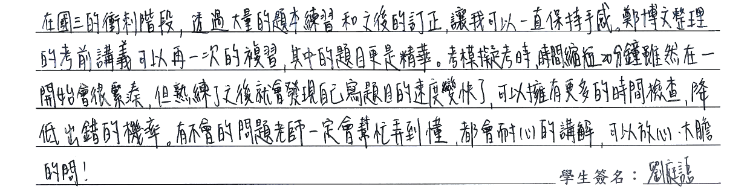 在國三的衝刺階段，透過大量的題本練習和之後的訂正，讓我可以一直保持手感。鄭博文整理
的考前講義可以再一次的複習，其中的題目更是精華。考模擬考時，時間縮短20分鐘雖然在一
開始會很緊湊，但熟練了之後就會發現自己寫題目的速度變快了，可以擁有更多的時間檢查，降
低出錯的機率。有不會的問題老師一定會幫忙弄到懂，都會耐心的講解，可以放心、大膽
的問！
學生簽名：劉庭